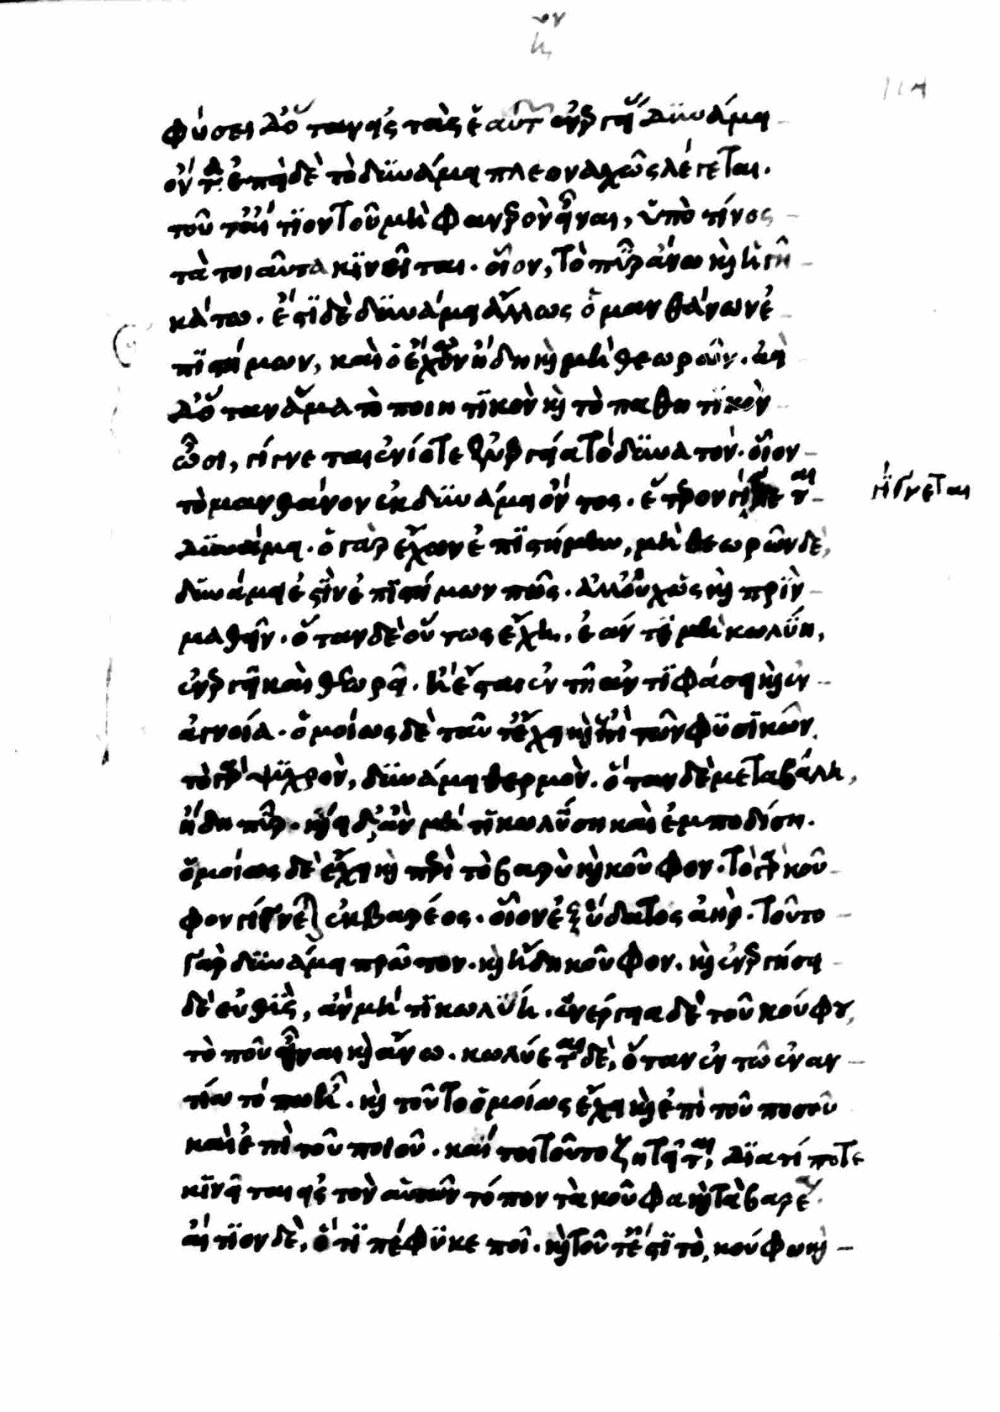 φύσει δ' ὅταν εἰς τὰς ἑαυτῶν ἐνεργείας δυνάμει
ὄντα. ἐπεὶ δὲ τὸ δυνάμει πλεοναχῶς λέγεται.
τοῦτ' αἴτιον τοῦ μὴ φανερὸν εἶναι, ὑπὸ τίνος
τὰ τοιαῦτα κινεῖται. οἷον, τὸ πῦρ ἄνω καὶ ἡ γῆ
κάτω. ἔστι δὲ δυνάμει ἄλλως ὁ μανθάνων ἐ
πιστήμων, καὶ ὁ ἔχων ἤδη καὶ μὴ θεωρῶν. ἀεὶ
δ' ὅταν ἅμα τὸ ποιητικὸν καὶ τὸ παθητικὸν
ὦσι, γίγνεται ἐνίοτε ἐνεργείᾳ τὸ δυνατόν. οἷον
τὸ μανθάνον ἐκ δυνάμει ὄντος. ἕτερον γίγνεται
δυνάμει. ὁ γὰρ ἔχων ἐπιστήμην, μὴ θεωρῶν δὲ,
δυνάμει ἐστὶν ἐπιστήμων πως. ἀλλ' οὐχ ὡς καὶ πρὶν
μαθεῖν. ὅταν δὲ οὕτως ἔχῃ, ἐάν τι μὴ κωλύῃ,
ἐνεργεῖ καὶ θεωρεῖ. ἢ ἔσται ἐν τῇ ἀντιφάσει καὶ ἐν
ἀγνοίᾳ. ὁμοίως δὲ ταῦτ' ἔχει καὶ ἐπὶ τῶν φυσικῶν.
τὸ γὰρ ψυχρὸν, δυνάμει θερμόν. ὅταν δὲ μεταβάλῃ,
ἤδη πῦρ. καίει δ' ἂν μή τι κωλύσῃ καὶ ἐμποδίσῃ.
ὁμοίως δὲ ἔχει καὶ περὶ τὸ βαρὺ καὶ κοῦφον. τὸ γὰρ κοῦ
φον γίγνεται ἐκ βαρέος. οἷον ἐξ ὕδατος ἀήρ. τοῦτο
γὰρ δυνάμει πρῶτον. καὶ ἤδη κοῦφον. καὶ ἐνεργήσει
δὲ εὐθὺς, ἂν μή τι κωλύῃ. ἐνέργεια δὲ τοῦ κούφου,
τὸ ποῦ εἶναι καὶ ἄνω. κωλύεται δὲ, ὅταν ἐν τῷ ἐναν
τίῳ τόπῳ ᾖ. καὶ τοῦτο ὁμοίως ἔχει καὶ ἐπὶ τοῦ ποσοῦ
καὶ ἐπὶ τοῦ ποιοῦ. καίτοι τοῦτο ζητεῖται, διατί ποτε
κινεῖται εἰς τὸν αὑτῶν τόπον τὰ κοῦφα καὶ τὰ βαρέα.
αἴτιον δὲ, ὅτι πέφυκέ ποι. καὶ τοῦτ' ἔστι τὸ κούφῳ καὶ
γίγνεται